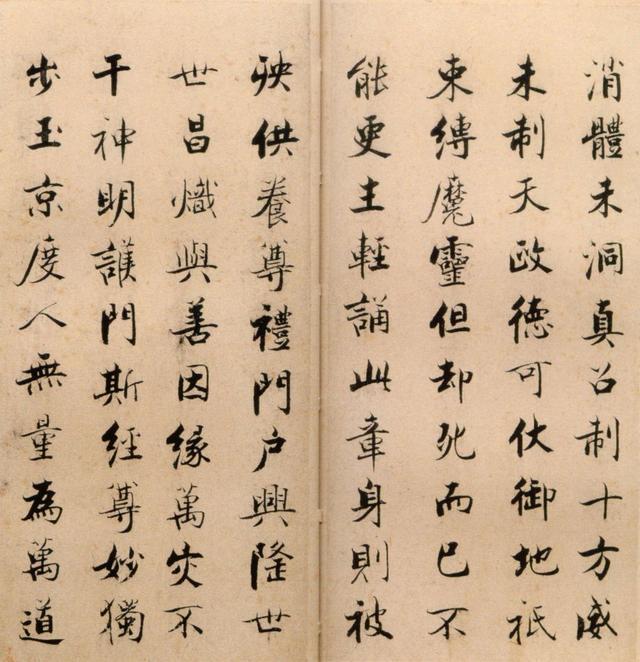 消體未洞真召制十方威
未制天政德可伏御地祇
束縛魔靈但却死而已不
能更生輕誦此章身則被
殃供養尊禮門户興隆世
世昌熾與善因緣萬灾不
干神明護門斯經尊妙獨
步玉京度人無量為萬道